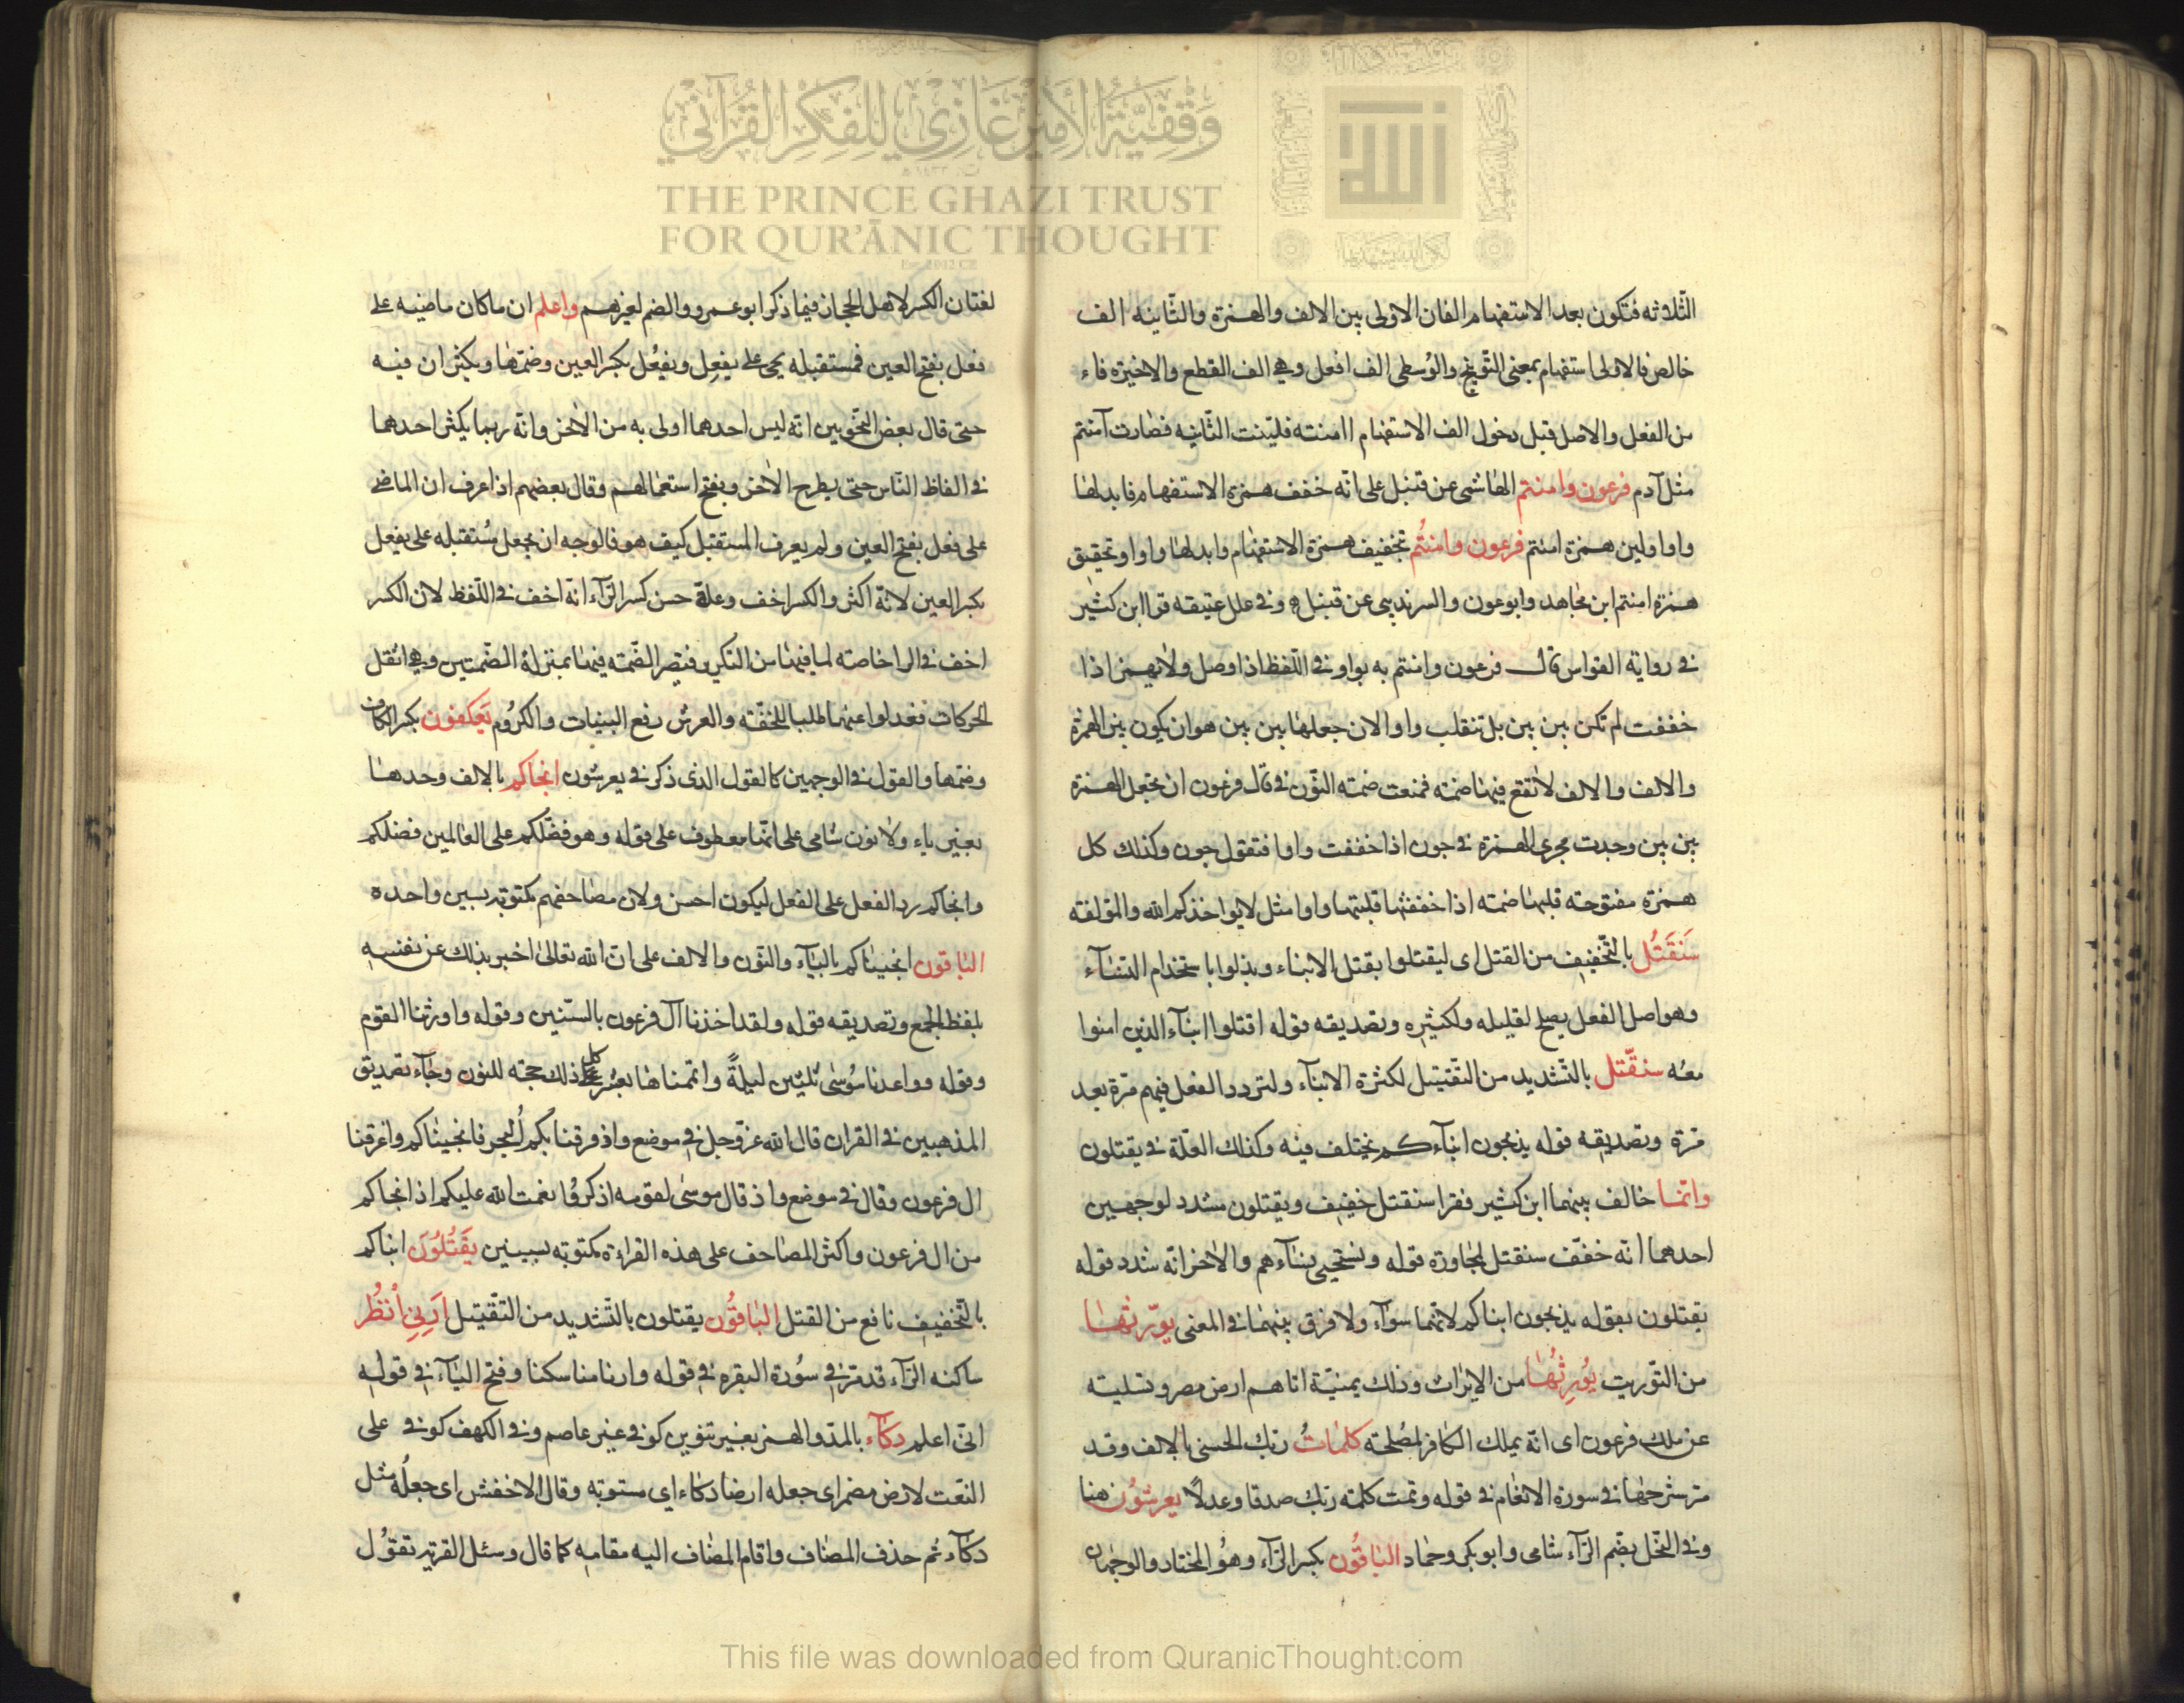 وَقْفِيَّةُ الأَمِيرِ غَازِي لِلْفِكْرِ القُرْآنِي
THE PRINCE GHAZI TRUST
FOR QUR'ĀNIC THOUGHT
الثّلاثه فتكون بعد الاستفهام الفان الاولى بين الالف والهمزة والثّانيه الف
خالص فالاولى استفهام بمعنى التّوبيخ والوُسطى الف افعل وهي الف القطع والاخيرة فاء
من الفعل والاصل قبل دخول الف الاستفهام اامنته فليّنت الثّانيه فصارت آمنتم
مثل آدم فرعون وامنتم الهاشمى عن قنبل على انّه خفف همزة الاستفهام فابدلها
واوا ولين همزة امنتم فرعون وامنتُم تخفيف همزة الاستفهام وابدلها واوا وتحقيق
همزة امنتم ابن مجاهد وابوعون والسرنديبى عن قنبل وفي علل عتيقه قرا ابن كثير
في رواية القواس قال فرعون وامنتم به بواو في اللّفظ اذا وصل ولا يهمز اذا
خففت لم تكن بين بين بل تنقلب واوا لان جعلها بين بين هو ان يكون بين الهمزة
والالف والالف لا تقع فيها ضمّه فمنعت ضمّه النّون في قال فرعون ان تجعل الهمزة
بين بين وجرت مجرى الهمزة في جون اذا خففت واوا فتقول جون وكذلك كل
همزة مفتوحة قبلها ضمّه اذا خففتها قلبتها واوا مثل لا يواخذكم الله والمؤلفة
سَنَقتُل بالتّخفيف من القتل اى ليقتلوا بقتل الابناء ويذلوا باستخدام النّساء
وهو اصل الفعل يصلح لقليله ولكثيره وتصديقه قوله اقتلوا ابنآء الذين امنوا
معه سنقَتّل بالتّشديد من التّقتيل لكثرة الابنآء ولتردد الفعل فيهم مرّة بعد
مرّة وتصديقه قوله يذبحون ابنآءكم يختلف فيه وكذلك العلّة في يقتلون
وانّما خالف بينهما ابن كثير فقرا سنقتل خفيف ويقتلون مشدد لوجهين
احدهما انّه خفّف سنقتل لمجاورة قوله ونستحيى نسآءهم والاخر انّه شدد قوله
يقتلون بقوله يذبحون ابناكم لانهما سوآء ولا فرق بينهما في المعنى يورّثها
من التّوريث يُورِثُها من الايراث وذلك بمنيّة اتاهم ارض مصر وتسليته
عن ملك فرعون اى انّه يملك الكافر لمصلحة كلماتُ ربّك الحسنى بالالف وقد
مرّ شرحها في سورة الانعام في قوله وتمت كلمة ربّك صدقا وعدلاً يعرشُون هنا
وفي النّحل بضّم الرّآء شامى وابوبكر وحماد الباقُون بكسر الرّآء وهُو المختار والوجهان
لغتان الكسر لاهل الحجاز فيما ذكر ابوعمرو والضم لغيرهم واعلم ان ماكان ماضيه على
فعل بفتح العين فمستقبله يجى على يفعِل ويفعُل بكسر العين وضمّها ويكثر ان فيه
حتى قال بعض النّحويين انّه ليس احدهما اولى به من الاخر وانّه ربما يكثر احدهما
في الفاظ النّاس حتى يطرح الاخر ويقبح استعمالهم وقال بعضهم اذا عرف ان الماضى
على فعل بفتح العين ولم يعرف المستقبل كيف هو فالوجه ان يجعل مُستقبله على يفعل
بكسر العين لانّه اكثر والكسر اخف وعلة حسن كسر الرّآء انّه اخف في اللّفظ لان الكسر
اخف في الرا خاصة لما فيها من التكرير فتصير الضّمة فيها بمنزلة الضّمتين وهي اثقل
الحركات فعدلوا عنها طلبا للخفّة والعرش رفع البنيات والكرُوم يَعكفون بكسر الكاف
وضمّها والقول في الوجهين كالقول الذي ذكر في يعرشون انجاكم بالالف وحدها
بغير ياء ولا نون شامى على انّها معطوف على قوله وهو فضّلكم على العالمين فضلكم
وانجاكم رد الفعل على الفعل ليكون احسن ولان مصاحفهم مكتوبة بسين واحدة
الباقون انجيناكم باليآء والنّون والالف على انّ الله تعالى اخبر بذلك عن نفسه
بلفظ الجمع وتصديقه قوله ولقد اخذنا آل فرعون بالسّنين وقوله واورثنا القوم
وقوله وواعدنا مُوسى ثلثين ليلةً واتممناها بعشر كل ذلك حجة للنون وجاء تصديق
المذهبين في القران قال الله عزّوجل في موضع واذ فرقنا بكم البحر فانجيناكم واغرقنا
ال فرعون وقال في موضع واذ قال موسى لقومه اذكرُوا نعمت الله عليكم اذ انجاكم
من ال فرعون واكثر المصاحف على هذه القراءة مكتوبة بسينين يَقتُلُونَ ابناكم
بالتّخفيف نافع من القتل الباقُون يقتلون بالتّشديد من التّقتيل اَرِنِي اُنظُر
ساكنه الرّآء قد مرّ في سُورة البقره في قوله وارنا مناسكنا وفتح اليآء في قوله
انّى اعلم دكآء بالمدّ والهمز بغير تنوين كوفي غير عاصم وفي الكهف كوفي على
النّعت لارض مضمر اى جعله ارضا دكاء اى مستوية وقال الاخفش اى جعلُه مثل
دكآء ثم حذف المضاف واقام المضاف اليه مقامه كما قال وسئل القرية تقوُل
This file was downloaded from QuranicThought.com